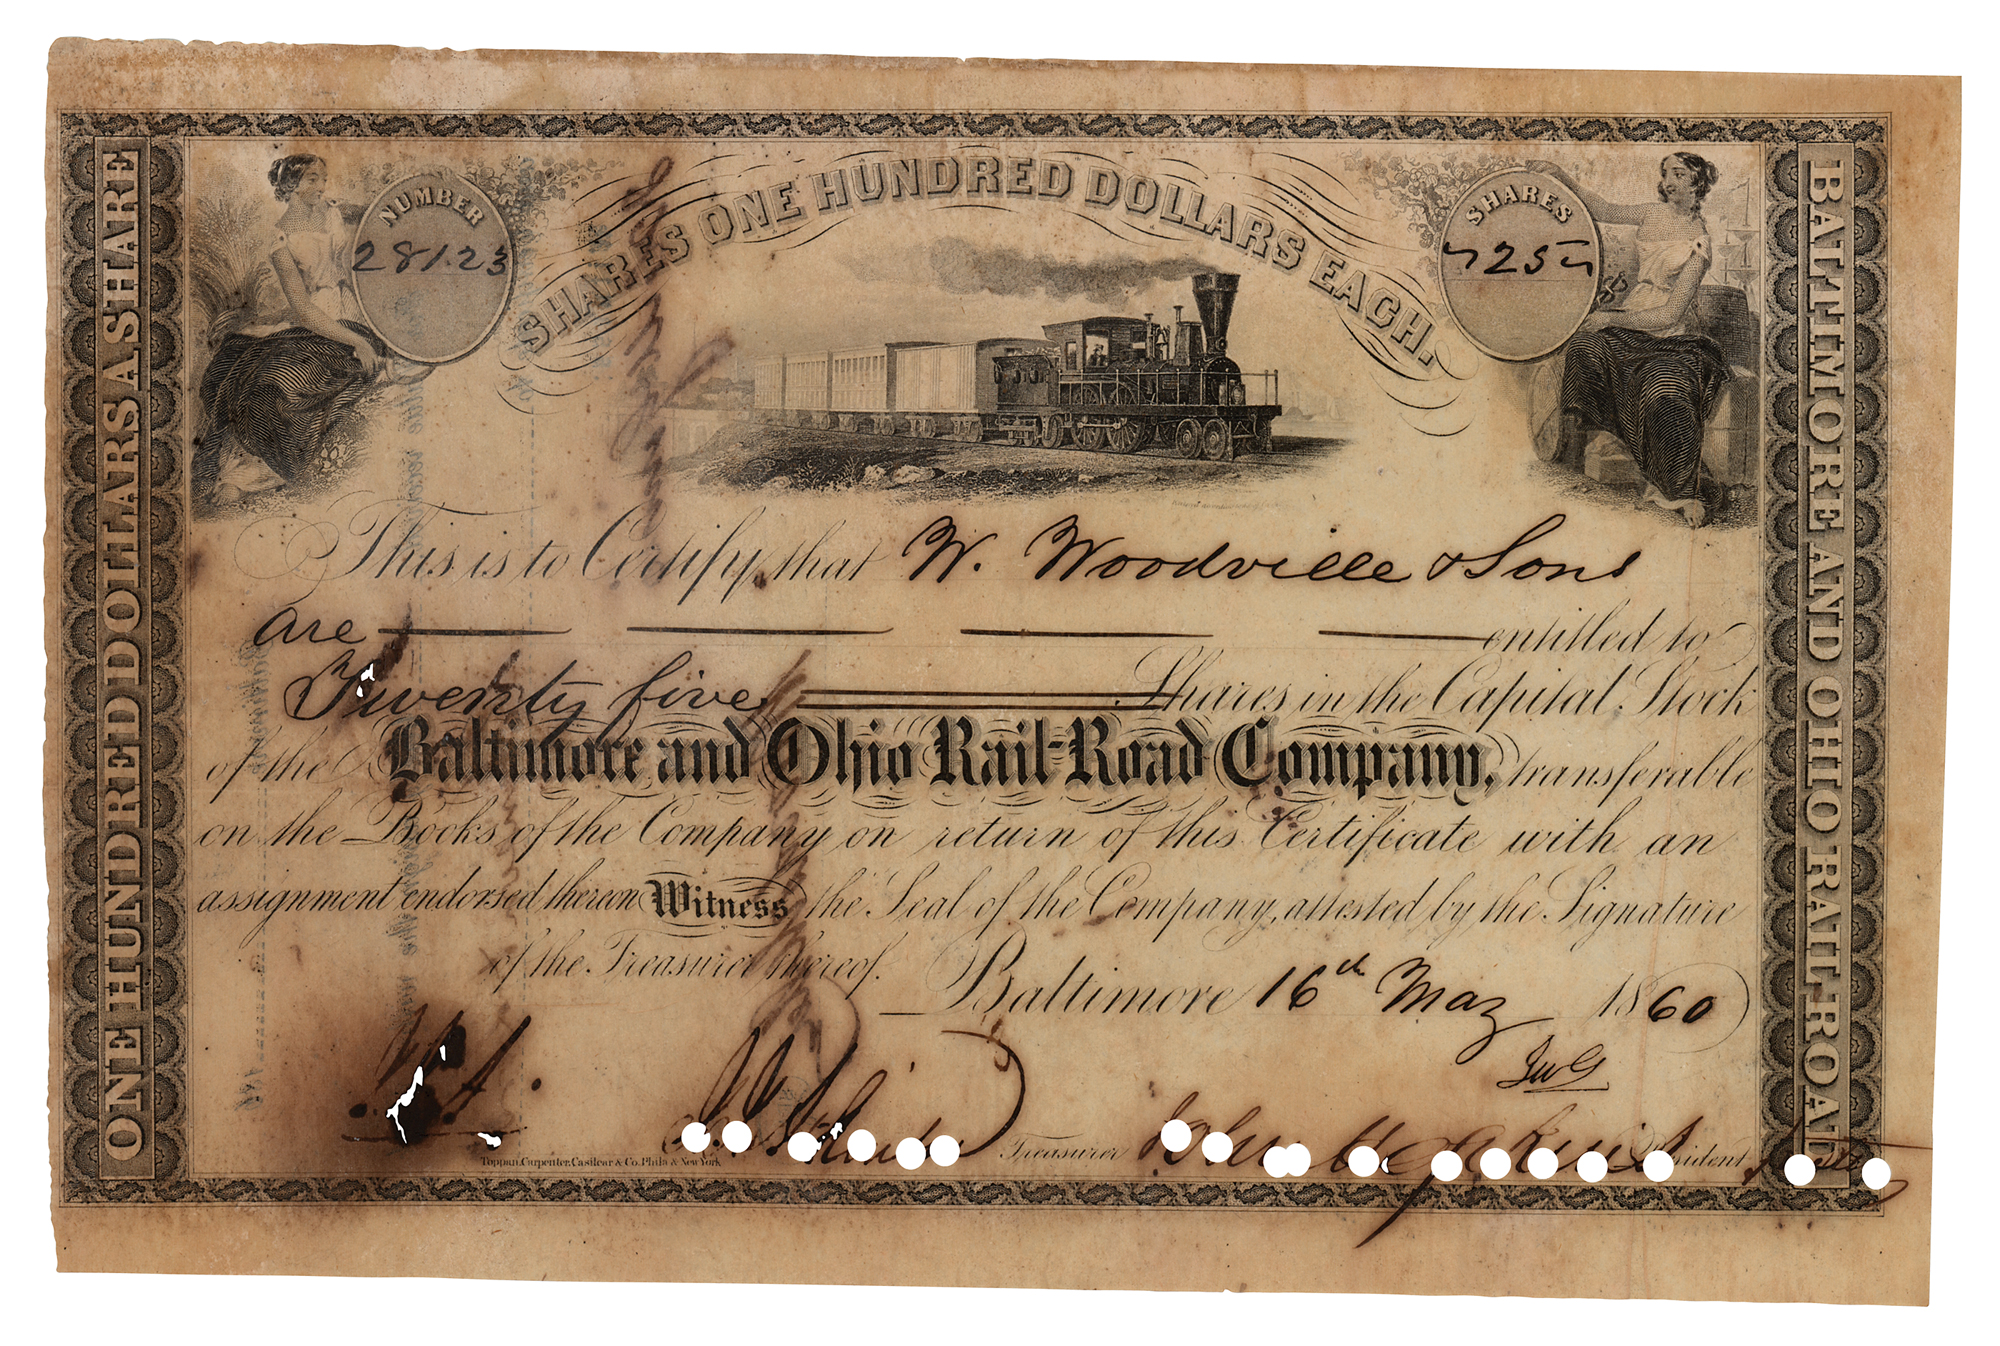 SHARES ONE HUNDRED DOLLARS EACH.
NUMBER
28123
SHARES
25
ONE HUNDRED DOLLARS A SHARE
BALTIMORE AND OHIO RAIL ROAD
This is to Certify, that W. Woodville & Sons
are entitled to
Twenty five Shares in the Capital Stock
of the Baltimore and Ohio Rail-Road Company, transferable
on the Books of the Company on return of this Certificate with an
assignment endorsed thereon Witness the Seal of the Company, attested by the Signature
of the Treasurer thereof.
Baltimore 16th May 1860
Treasurer
John Hopkins President
Toppan, Carpenter, Casilear & Co. Phila & New York